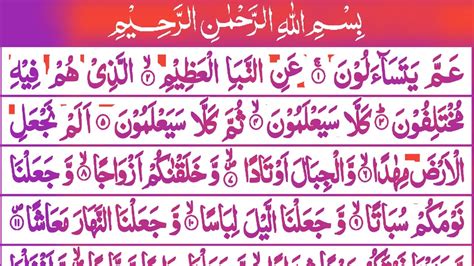 بِسْمِ اللّٰهِ الرَّحْمٰنِ الرَّحِيْمِ
عَمَّ يَتَسَآءَلُوْنَ ۚ‏﴿۱﴾ عَنِ النَّبَاِ الْعَظِيْمِ ۙ‏﴿۲﴾ الَّذِىْ هُمْ فِيْهِ
مُخْتَلِفُوْنَ ؕ‏﴿۳﴾ كَلَّا سَيَعْلَمُوْنَ ۙ‏﴿۴﴾ ثُمَّ كَلَّا سَيَعْلَمُوْنَ ﴿۵﴾ اَلَمْ نَجْعَلِ
الْاَرْضَ مِهٰدًا ۙ‏﴿۶﴾ وَّالْجِبَالَ اَوْتَادًا ۪ۙ‏﴿۷﴾ وَّ خَلَقْنٰكُمْ اَزْوَاجًا ۙ‏﴿۸﴾ وَّ جَعَلْنَا
نَوْمَكُمْ سُبَاتًا ۙ‏﴿۹﴾ وَّ جَعَلْنَا الَّيْلَ لِبَاسًا ۙ‏﴿۱۰﴾ وَّ جَعَلْنَا النَّهَارَ مَعَاشًا ۪‏﴿۱۱﴾